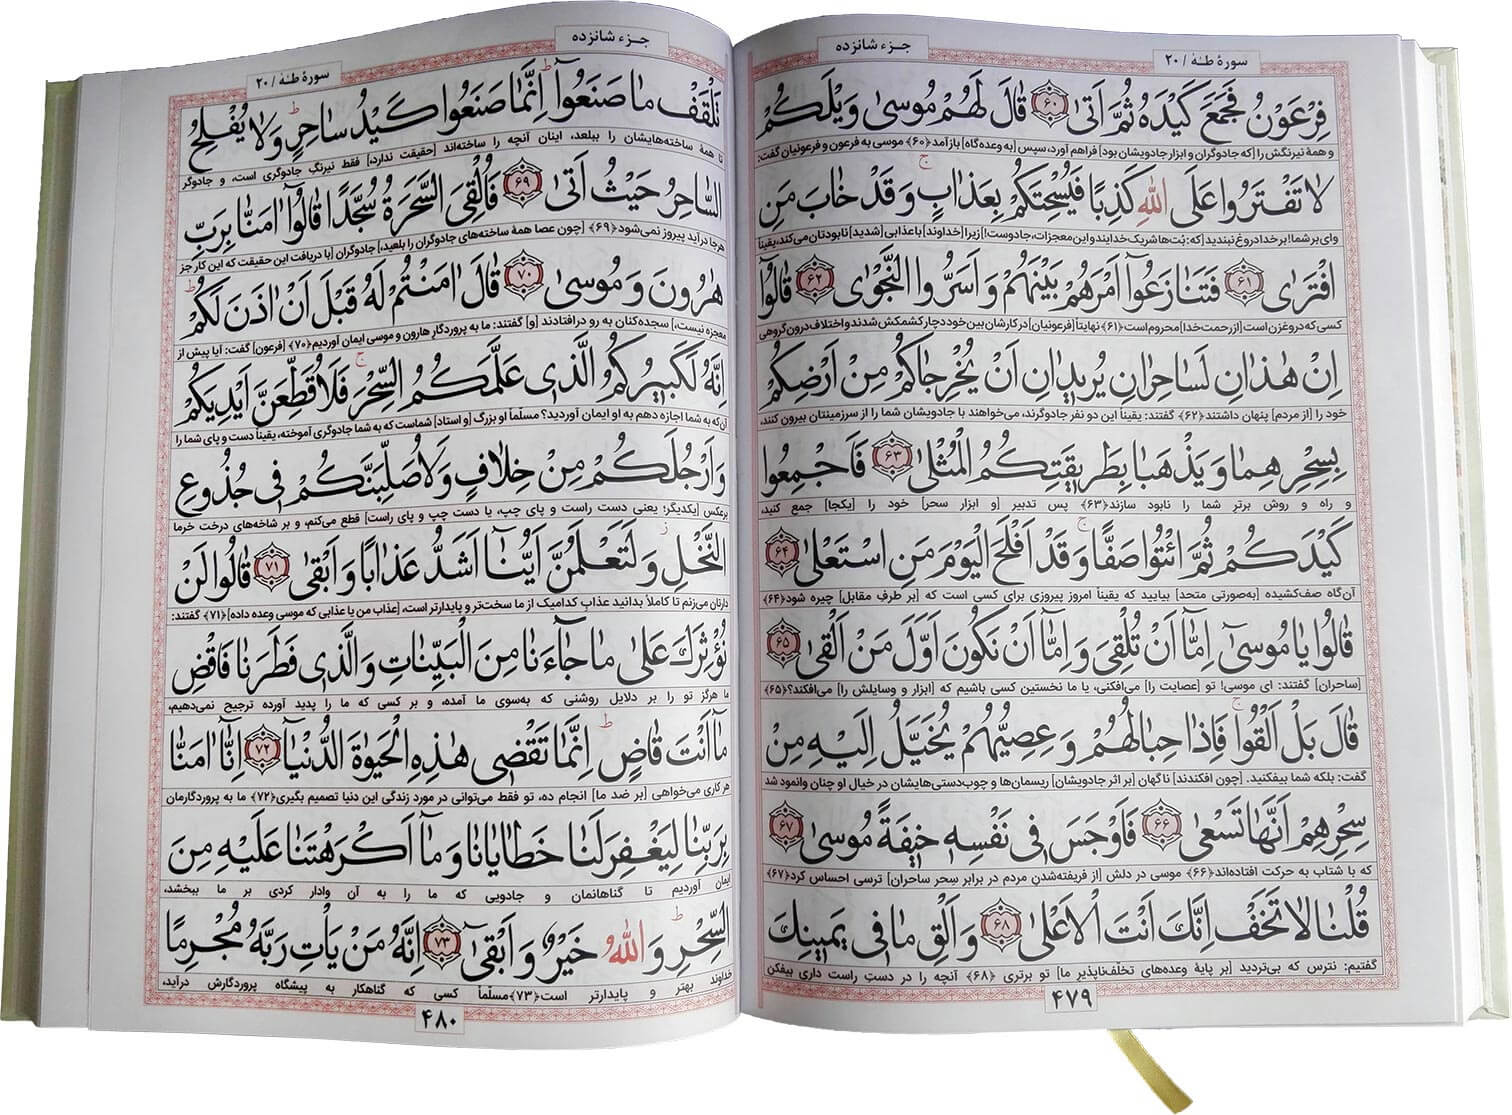 سورهٔ طـٰهٰ / ۲۰
جـزء شانزده
فِرْعَوْنُ فَجَمَعَ كَيْدَهُ ثُمَّ اَتىٰ ﴿۶۰﴾ قالَ لَهُمْ مُوسىٰ وَيْلَكُمْ
و همهٔ نیرنگش را [که جادوگران و ابزار جادویشان بود] فراهم آورد، سپس [به وعده‌گاه] بازآمد﴿۶۰﴾ موسی به فرعون و فرعونیان گفت:
لا تَفْتَرُوا عَلَى اللهِ كَذِبًا فَيُسْحِتَكُمْ بِعَذابٍ ج وَ قَدْ خابَ مَنِ
وای بر شما! بر خدا دروغ نبندید [که: بُت‌ها شریک خدایند و این معجزات، جادوست!] زیرا [خداوند] با عذابی [شدید] نابودتان می‌کند، یقیناً
افْتَرىٰ ﴿۶۱﴾ فَتَنازَعُوٓا اَمْرَهُمْ بَيْنَهُمْ وَ اَسَرُّوا النَّجْوىٰ ﴿۶۲﴾ قالُوٓا
کسی که دروغ‌زن است [از رحمت خدا] محروم است﴿۶۱﴾ نهایتاً [فرعونیان] در کارشان بین خود دچار کشمکش شدند و اختلاف درون گروهی
اِنْ هٰذانِ لَساحِرانِ يُريدانِ اَنْ يُخْرِجاكُمْ مِنْ اَرْضِكُمْ
خود را [از مردم] پنهان داشتند﴿۶۲﴾ گفتند: یقیناً این دو نفر جادوگرند، می‌خواهند با جادویشان شما را از سرزمینتان بیرون کنند،
بِسِحْرِهِما وَ يَذْهَبا بِطَريقَتِكُمُ الْمُثْلىٰ ﴿۶۳﴾ فَاَجْمِعُوا
و راه و روش برتر شما را نابود سازند﴿۶۳﴾ پس تدبیر [و ابزار سحر] خود را [یکجا] جمع کنید،
كَيْدَكُمْ ثُمَّ ائْتُوا صَفًّا ج وَ قَدْ اَفْلَحَ الْيَوْمَ مَنِ اسْتَعْلىٰ ﴿۶۴﴾
آن‌گاه صف‌کشیده [به‌صورتی متحد] بیایید که یقیناً امروز پیروزی برای کسی است که [بر طرفِ مقابل] چیره شود﴿۶۴﴾
قالُوا يا مُوسىٰٓ اِمّٰٓا اَنْ تُلْقِىَ وَ اِمّٰٓا اَنْ نَكُونَ اَوَّلَ مَنْ اَلْقىٰ ﴿۶۵﴾
[ساحران] گفتند: ای موسی! تو [عصایت را] می‌افکنی، یا ما نخستین کسی باشیم که [ابزار و وسایلش را] می‌افکند؟﴿۶۵﴾
قالَ بَلْ اَلْقُوا ج فَاِذا حِبالُهُمْ وَ عِصِيُّهُمْ يُخَيَّلُ اِلَيْهِ مِنْ
گفت: بلکه شما بیفکنید. [چون افکندند] ناگهان [بر اثر جادویشان] ریسمان‌ها و چوب‌دستی‌هایشان در خیال او چنان وانمود شد
سِحْرِهِمْ اَنَّها تَسْعىٰ ﴿۶۶﴾ فَاَوْجَسَ فى نَفْسِهِ خيفَةً مُوسىٰ ﴿۶۷﴾
که با شتاب به حرکت افتاده‌اند﴿۶۶﴾ موسی در دلش [از فریفته‌شدنِ مردم در برابر سِحر ساحران] ترسی احساس کرد﴿۶۷﴾
قُلْنا لا تَخَفْ اِنَّكَ اَنْتَ الْاَعْلىٰ ﴿۶۸﴾ وَ اَلْقِ ما فى يَمينِكَ
گفتیم: نترس که بی‌تردید [بر پایهٔ وعده‌های تخلّف‌ناپذیر ما] تو برتری ﴿۶۸﴾ آنچه را در دستِ راست داری بیفکن
۴۷۹
جـزء شانزده
سورهٔ طـٰهٰ / ۲۰
تَلْقَفْ ما صَنَعُوٓا ط اِنَّما صَنَعُوا كَيْدُ ساحِرٍ ط وَ لا يُفْلِحُ
تا همهٔ ساخته‌هایشان را ببلعد، اینان آنچه را ساخته‌اند [حقیقت ندارد،] فقط نیرنگِ جادوگری است، و جادوگر
السّاحِرُ حَيْثُ اَتىٰ ﴿۶۹﴾ فَاُلْقِىَ السَّحَرَةُ سُجَّدًا قالُوٓا اٰمَنّا بِرَبِّ
هرجا درآید پیروز نمی‌شود﴿۶۹﴾ [چون عصا همهٔ ساخته‌های جادوگران را بلعید،] جادوگران [با دریافت این حقیقت که این کار جز
هٰرُونَ وَ مُوسىٰ ﴿۷۰﴾ قالَ اٰمَنْتُمْ لَهُ قَبْلَ اَنْ اٰذَنَ لَكُمْ ط
معجزه نیست،] سجده‌کنان به رو درافتادند [و] گفتند: ما به پروردگارِ هارون و موسی ایمان آوردیم﴿۷۰﴾ [فرعون] گفت: آیا پیش از
اِنَّهُ لَكَبيرُكُمُ الَّذى عَلَّمَكُمُ السِّحْرَ ج فَلَاُقَطِّعَنَّ اَيْدِيَكُمْ
آن‌که به شما اجازه دهم به او ایمان آوردید؟ مسلّماً او بزرگ [و استاد] شماست که به شما جادوگری آموخته، یقیناً دست و پای شما را
وَ اَرْجُلَكُمْ مِنْ خِلافٍ وَ لَاُصَلِّبَنَّكُمْ فى جُذُوعِ
برعکسِ [یکدیگر؛ یعنی دست راست و پای چپ، یا دست چپ و پای راست] قطع می‌کنم، و بر شاخه‌های درخت خرما
النَّخْلِ ز وَ لَتَعْلَمُنَّ اَيُّنآ اَشَدُّ عَذابًا وَ اَبْقىٰ ﴿۷۱﴾ قالُوا لَنْ
دارتان می‌زنم تا کاملاً بدانید عذابِ کدامیک از ما سخت‌تر و پایدارتر است، [عذاب من یا عذابی که موسی وعده داده]﴿۷۱﴾ گفتند:
نُؤْثِرَكَ عَلىٰ ما جآءَنا مِنَ الْبَيِّناتِ وَ الَّذى فَطَرَنا فَاقْضِ
ما هرگز تو را بر دلایل روشنی که به‌سوی ما آمده، و بر کسی که ما را پدید آورده ترجیح نمی‌دهیم،
مآ اَنْتَ قاضٍ ط اِنَّما تَقْضى هٰذِهِ الْحَيٰوةَ الدُّنْيآ ﴿۷۲﴾ اِنّآ اٰمَنّا
هر کاری می‌خواهی [بر ضد ما] انجام ده، تو فقط می‌توانی در مورد زندگی این دنیا تصمیم بگیری﴿۷۲﴾ ما به پروردگارمان
بِرَبِّنا لِيَغْفِرَ لَنا خَطايانا وَ مآ اَكْرَهْتَنا عَلَيْهِ مِنَ
ایمان آوردیم تا گناهانمان و جادویی که ما را به آن وادار کردی بر ما ببخشد،
السِّحْرِ ط وَ اللهُ خَيْرٌ وَ اَبْقىٰٓ ﴿۷۳﴾ اِنَّهُ مَنْ يَأْتِ رَبَّهُ مُجْرِمًا
خداوند بهتر و پایدارتر است﴿۷۳﴾مسلّماً کسی که گناهکار به پیشگاه پروردگارش درآید،
۴۸۰